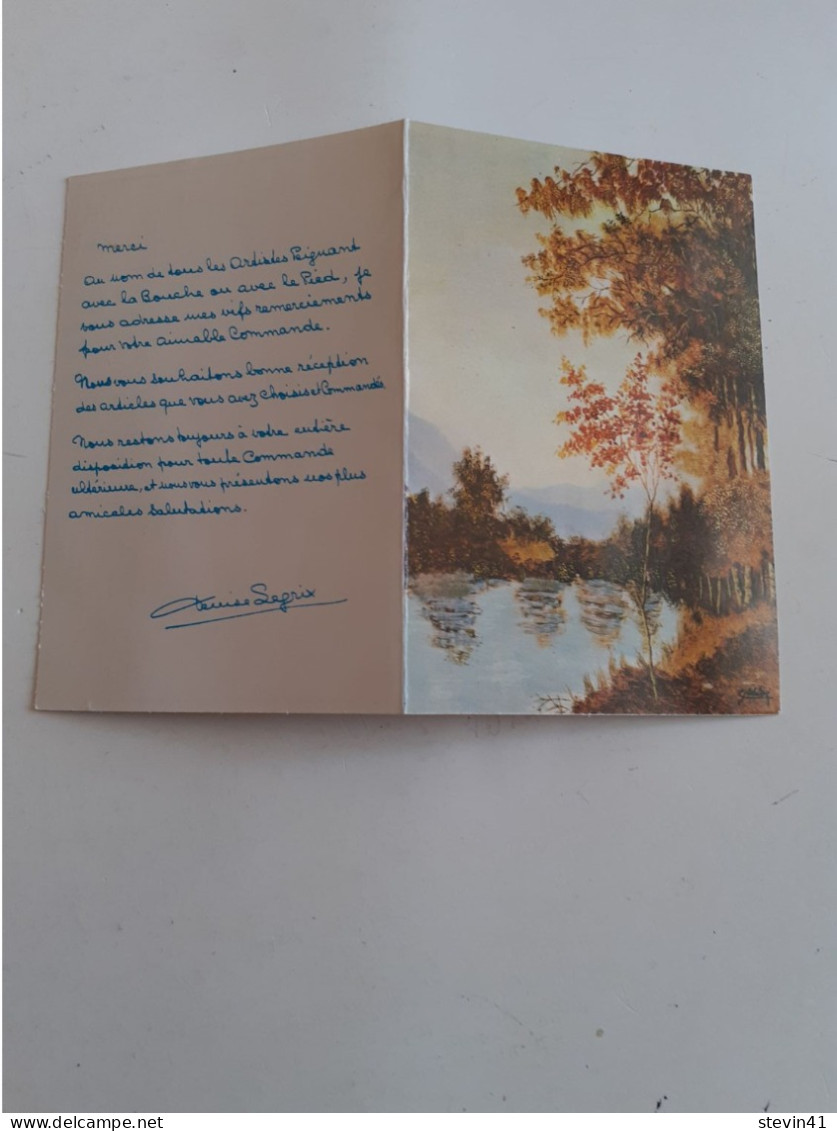 Merci
Au nom de tous les Artistes Peignant
avec la Bouche ou avec le Pied, je
vous adresse mes vifs remerciements
pour votre aimable Commande.
Nous vous souhaitons bonne réception
des articles que vous avez Choisis et Commandés
Nous restons toujours à votre entière
disposition pour toute Commande
ultérieure, et nous vous présentons nos plus
amicales Salutations.
Denise Legrix
delcampe.net
stevin41